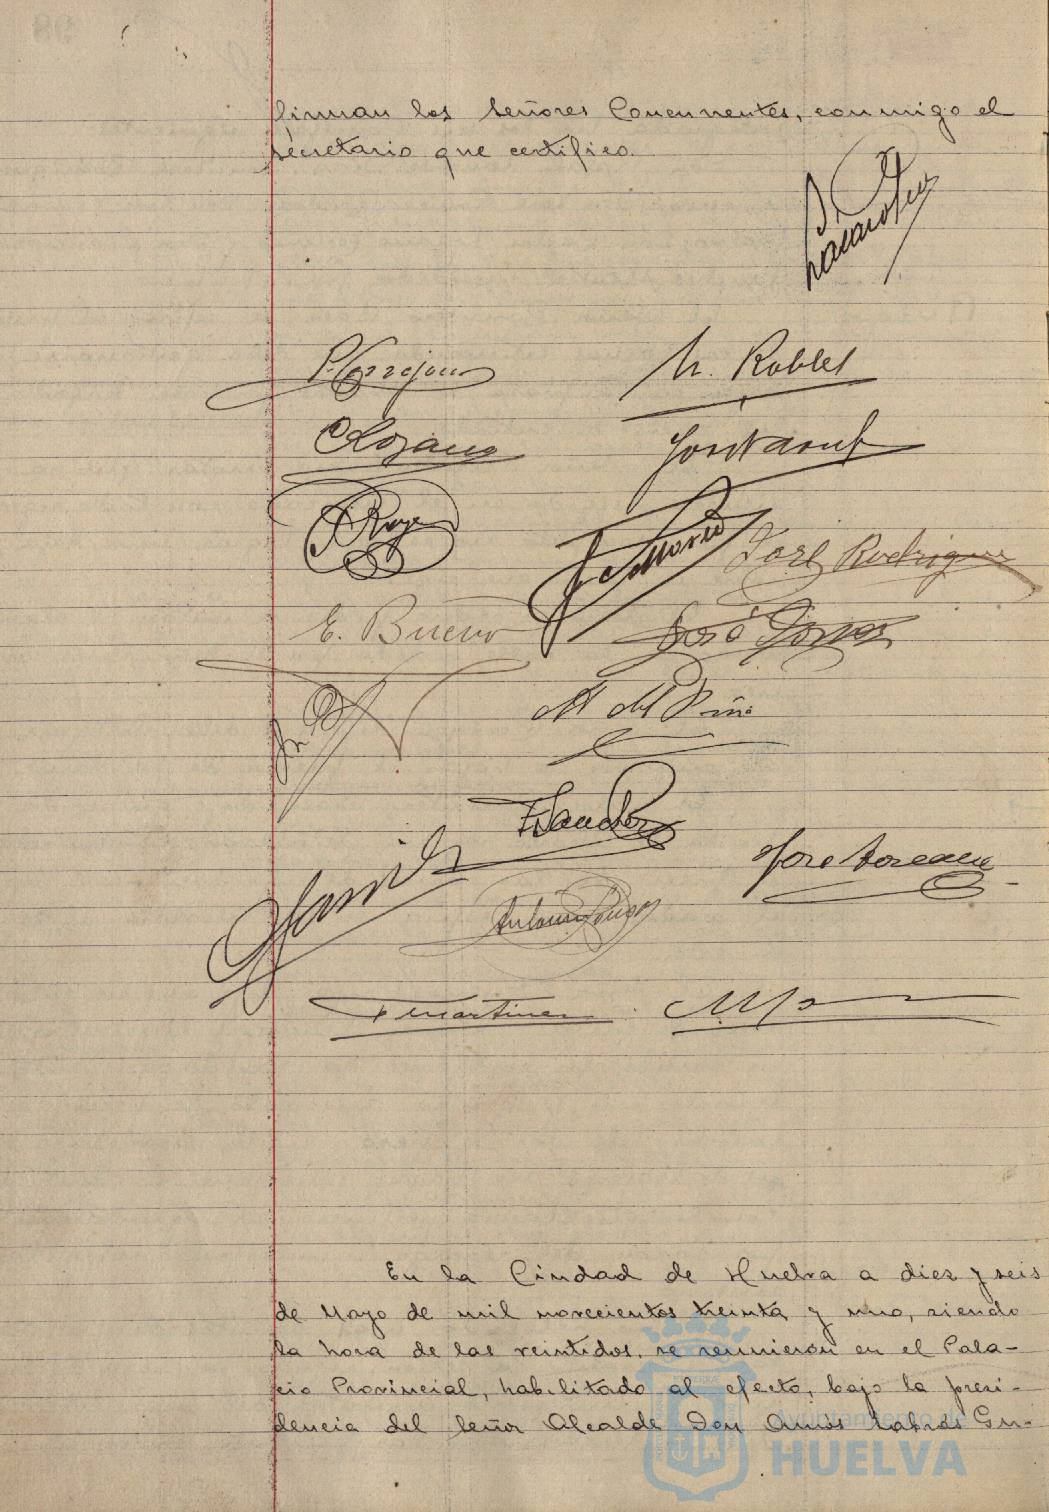 firman los Señores Concurrentes, conmigo el
secretario que certifico.
M. Robles
C Lozano
José Rodriguez
E. Bueno
José
M del Pino
F Sanchez
José
Antonio
F Martinez
En la Ciudad de Huelva a diez y seis
de Mayo de mil novecientos treinta y uno, siendo
la hora de las veintidos, se reunieron en el Pala-
cio Provincial, habilitado al efecto, bajo la presi-
dencia del Señor Alcalde Don Amós Sabrás Gu-
Ayuntamiento de
HUELVA